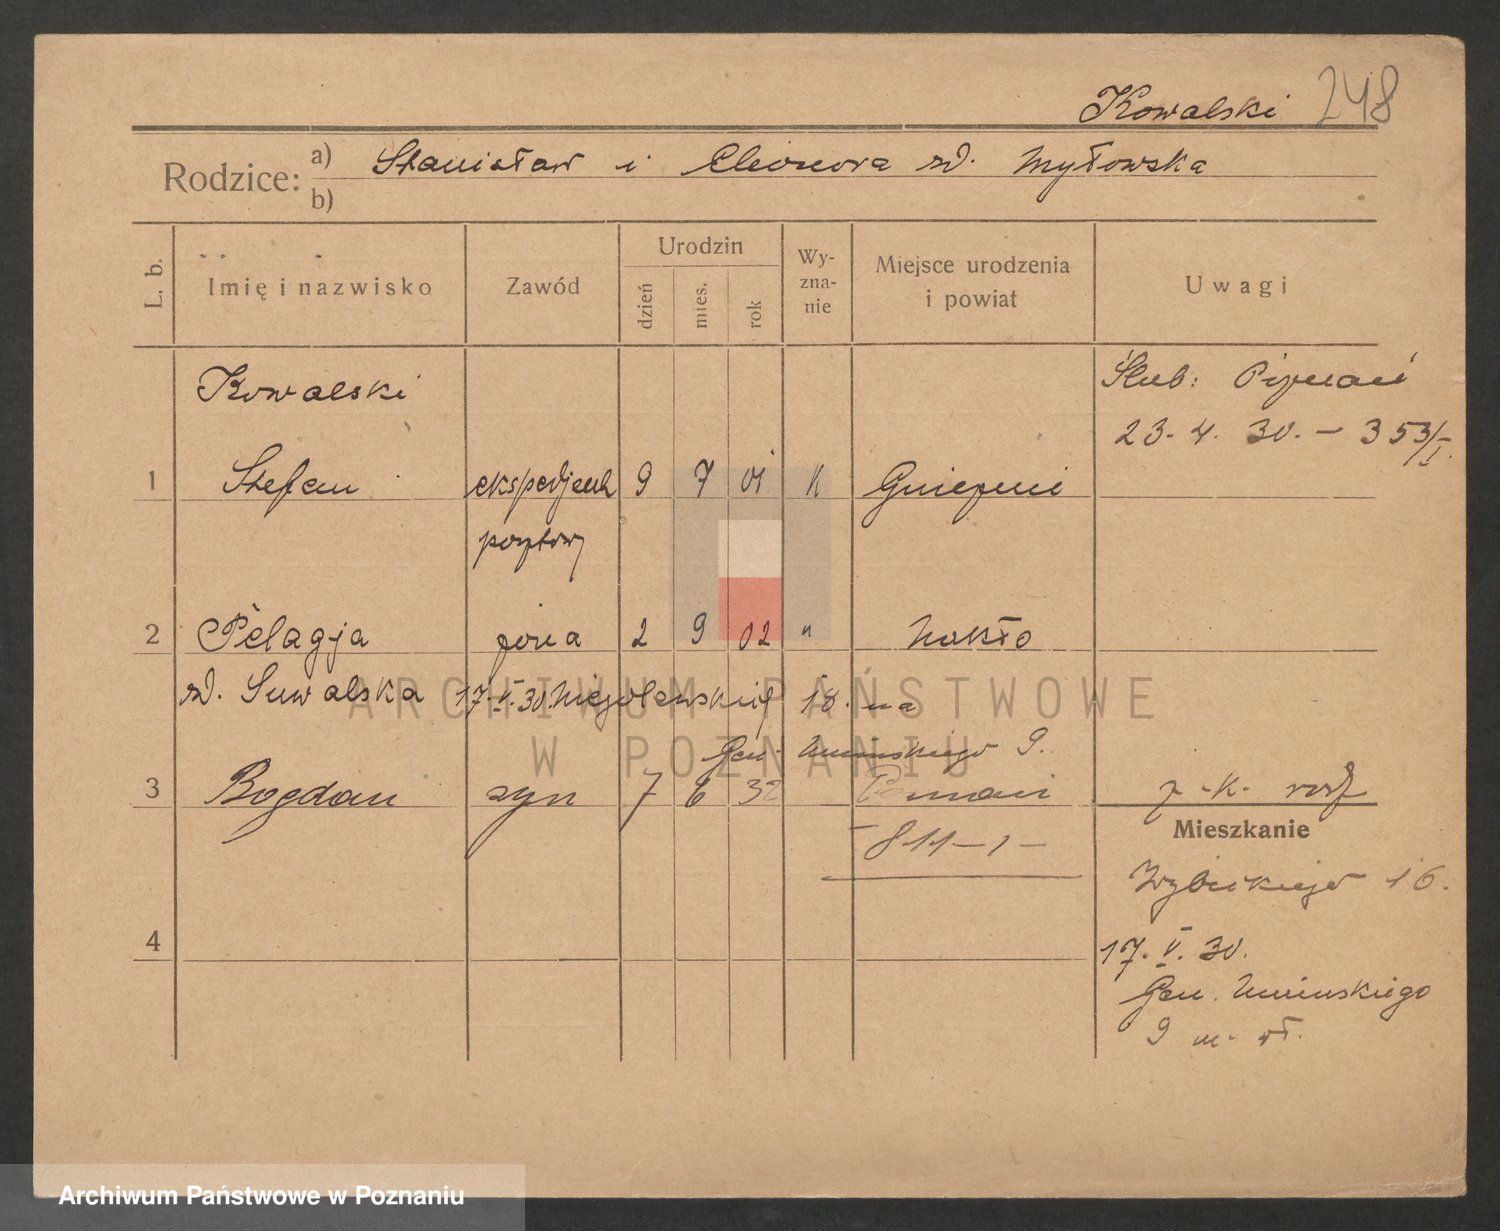 Kowalski 248
Rodzice: a) Stanisław i Eleonora zd. Mytowska
b)
L. b.
Imię i nazwisko
Zawód
Urodzin
dzień
mies.
rok
Wy-
zna-
nie
Miejsce urodzenia
i powiat
Uwagi
Kowalski
Ślub: Poznań
23. 4. 30. - 353/I.
1 Stefan ekspedjent 9 7 01 k Gniezno
pocztowy
2 Pelagja żona 2 9 02 " Nakło
zd. Suwalska 17. V. 30. Niegolewskich 18. na
Gen. Umińskiego 9.
3 Bogdan syn 7 6 32 Poznań
811 - I -
Mieszkanie
Wybickiego 16.
4
17. V. 30.
Gen. Umińskiego
9 m.
ARCHIWUM PAŃSTWOWE
W POZNANIU
Archiwum Państwowe w Poznaniu